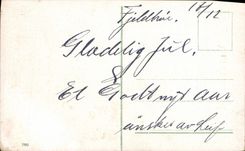 Fjeldhøi. 18/12
Gladelig Jul.
Et Godt nyt aar
ønskes av Leif